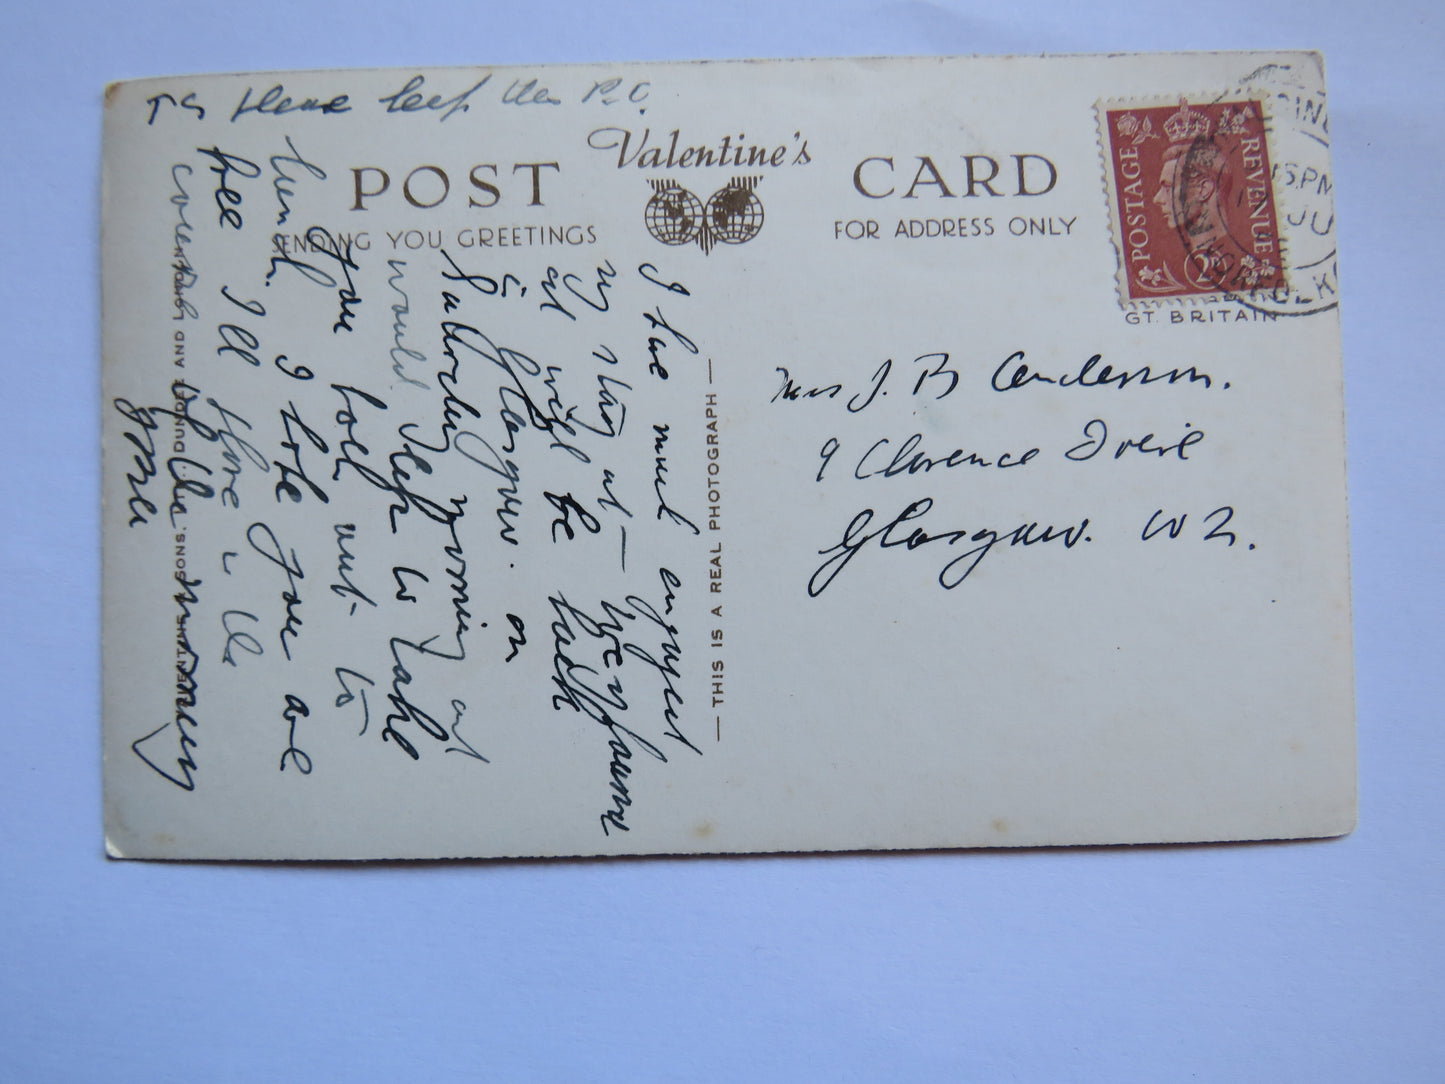 Please keep this P.C.
Valentine's
POST CARD
SENDING YOU GREETINGS
FOR ADDRESS ONLY
POSTAGE
REVENUE
2D
5.PM
JU
NORFOLK
GT. BRITAIN
I have much enjoyed
my stay at
at will be back
in Glasgow. on
Saturday morning and
would like to take
you both out to
lunch. I hope you are
free I'll phone in the
morning
— THIS IS A REAL PHOTOGRAPH —
AND SONS.
Mrs J. B Anderson.
9 Clarence Drive
Glasgow. W2.